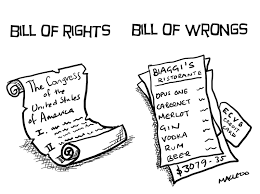 BILL OF RIGHTS
BILL OF WRONGS
The Congress
of the
United States
of America
I.
II.
III
BIAGGI'S
RISTORANTE
OPUS ONE
CABERNET
MERLOT
GIN
VODKA
RUM
BEER
$3079.35
CREDIT
CARD